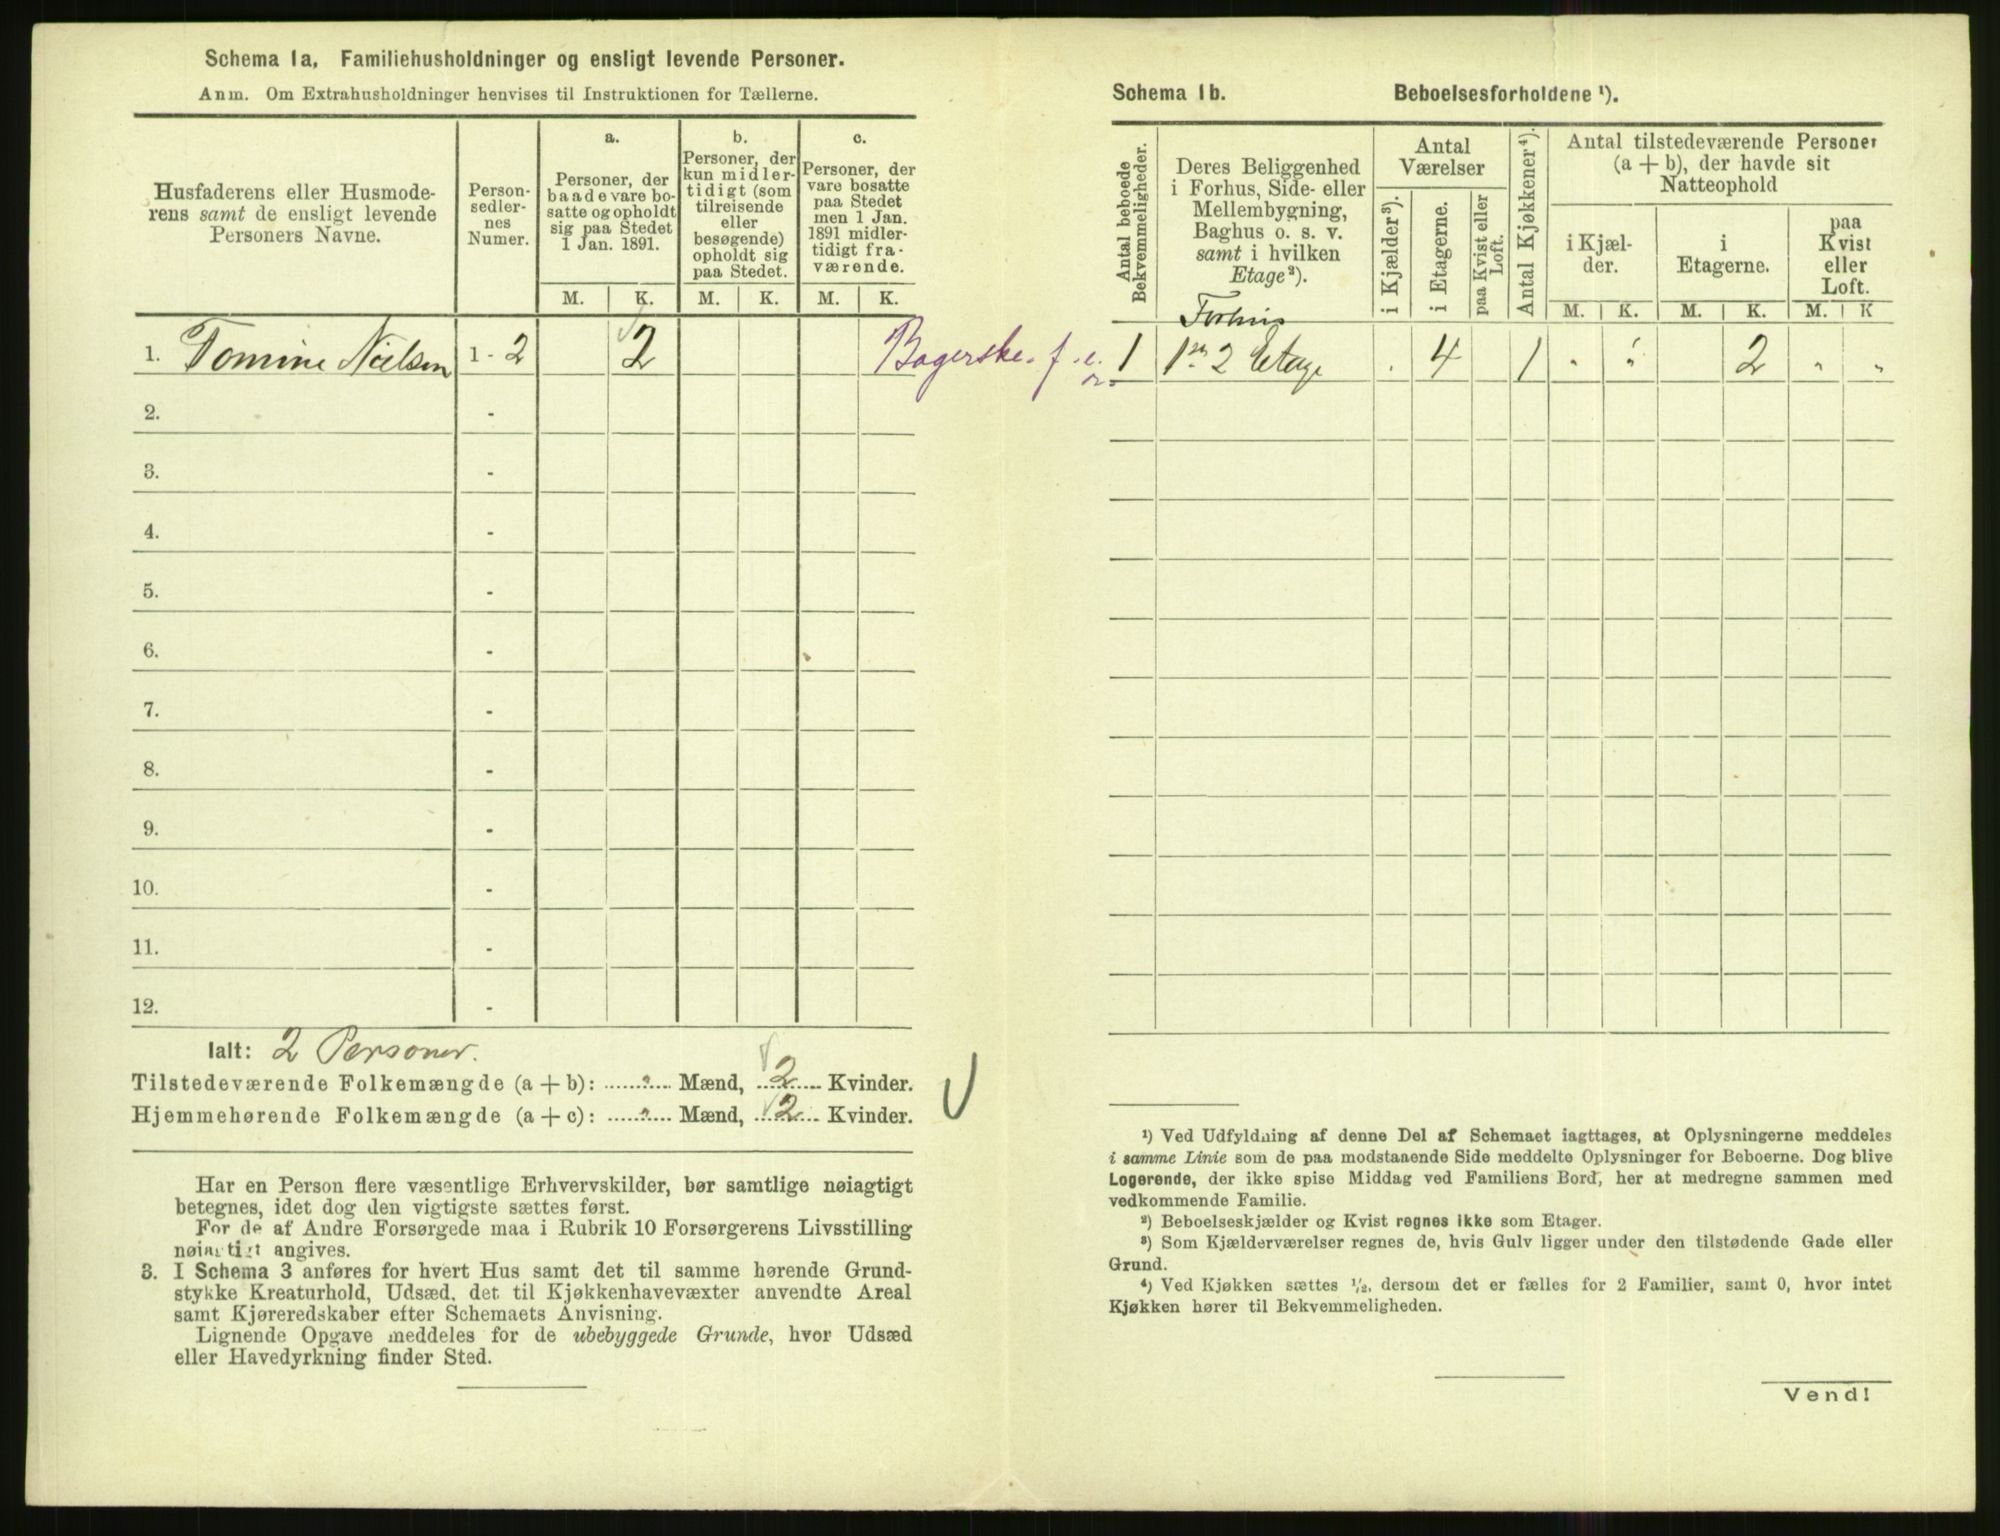 Schema 1a, Familiehusholdninger og ensligt levende Personer.
Anm. Om Extrahusholdninger henvises til Instruktionen for Tællerne.
Husfaderens eller Husmode-
rens samt de ensligt levende
Personers Navne.
Person-
sedler-
nes
Numer.
a.
Personer, der
baade vare bo-
satte og opholdt
sig paa Stedet
1 Jan. 1891.
b.
Personer, der
kun midler-
tidigt (som
tilreisende
eller
besøgende)
opholdt sig
paa Stedet.
c.
Personer, der
vare bosatte
paa Stedet
men 1 Jan.
1891 midler-
tidigt fra-
værende.
M. K. M. K. M. K.
1. Tomine Nielsen 1 - 2 2 Bagerske. f. e.
2. -
3. -
4. -
5. -
6. -
7. -
8. -
9. -
10. -
11. -
12. -
Ialt: 2 Personer.
Tilstedeværende Folkemængde (a + b): " Mænd, 2 Kvinder.
Hjemmehørende Folkemængde (a + c): " Mænd, 2 Kvinder.
Har en Person flere væsentlige Erhvervskilder, bør samtlige nøiagtigt
betegnes, idet dog den vigtigste sættes først.
For de af Andre Forsørgede maa i Rubrik 10 Forsørgerens Livsstilling
nøiagtigt angives.
3. I Schema 3 anføres for hvert Hus samt det til samme hørende Grund-
stykke Kreaturhold, Udsæd, det til Kjøkkenhavevæxter anvendte Areal
samt Kjøreredskaber efter Schemaets Anvisning.
Lignende Opgave meddeles for de ubebyggede Grunde, hvor Udsæd
eller Havedyrkning finder Sted.
Schema 1b. Beboelsesforholdene ¹).
Antal beboede
Bekvemmeligheder.
Deres Beliggenhed
i Forhus, Side- eller
Mellembygning,
Baghus o. s. v.
samt i hvilken
Etage²).
Antal
Værelser
i Kjælder³).
i Etagerne.
paa Kvist eller
Loft.
Antal Kjøkkener⁴).
Antal tilstedeværende Personer
(a + b), der havde sit
Natteophold
i Kjæl-
der.
i
Etagerne.
paa
Kvist
eller
Loft.
M. K. M. K. M. K
Forhus
1 1ste 2 Etage . 4 1 " " 2 " "
¹) Ved Udfyldning af denne Del af Schemaet iagttages, at Oplysningerne meddeles
i samme Linie som de paa modstaaende Side meddelte Oplysninger for Beboerne. Dog blive
Logerende, der ikke spise Middag ved Familiens Bord, her at medregne sammen med
vedkommende Familie.
²) Beboelseskjælder og Kvist regnes ikke som Etager.
³) Som Kjælderværelser regnes de, hvis Gulv ligger under den tilstødende Gade eller
Grund.
⁴) Ved Kjøkken sættes ½, dersom det er fælles for 2 Familier, samt 0, hvor intet
Kjøkken hører til Bekvemmeligheden.
Vend!